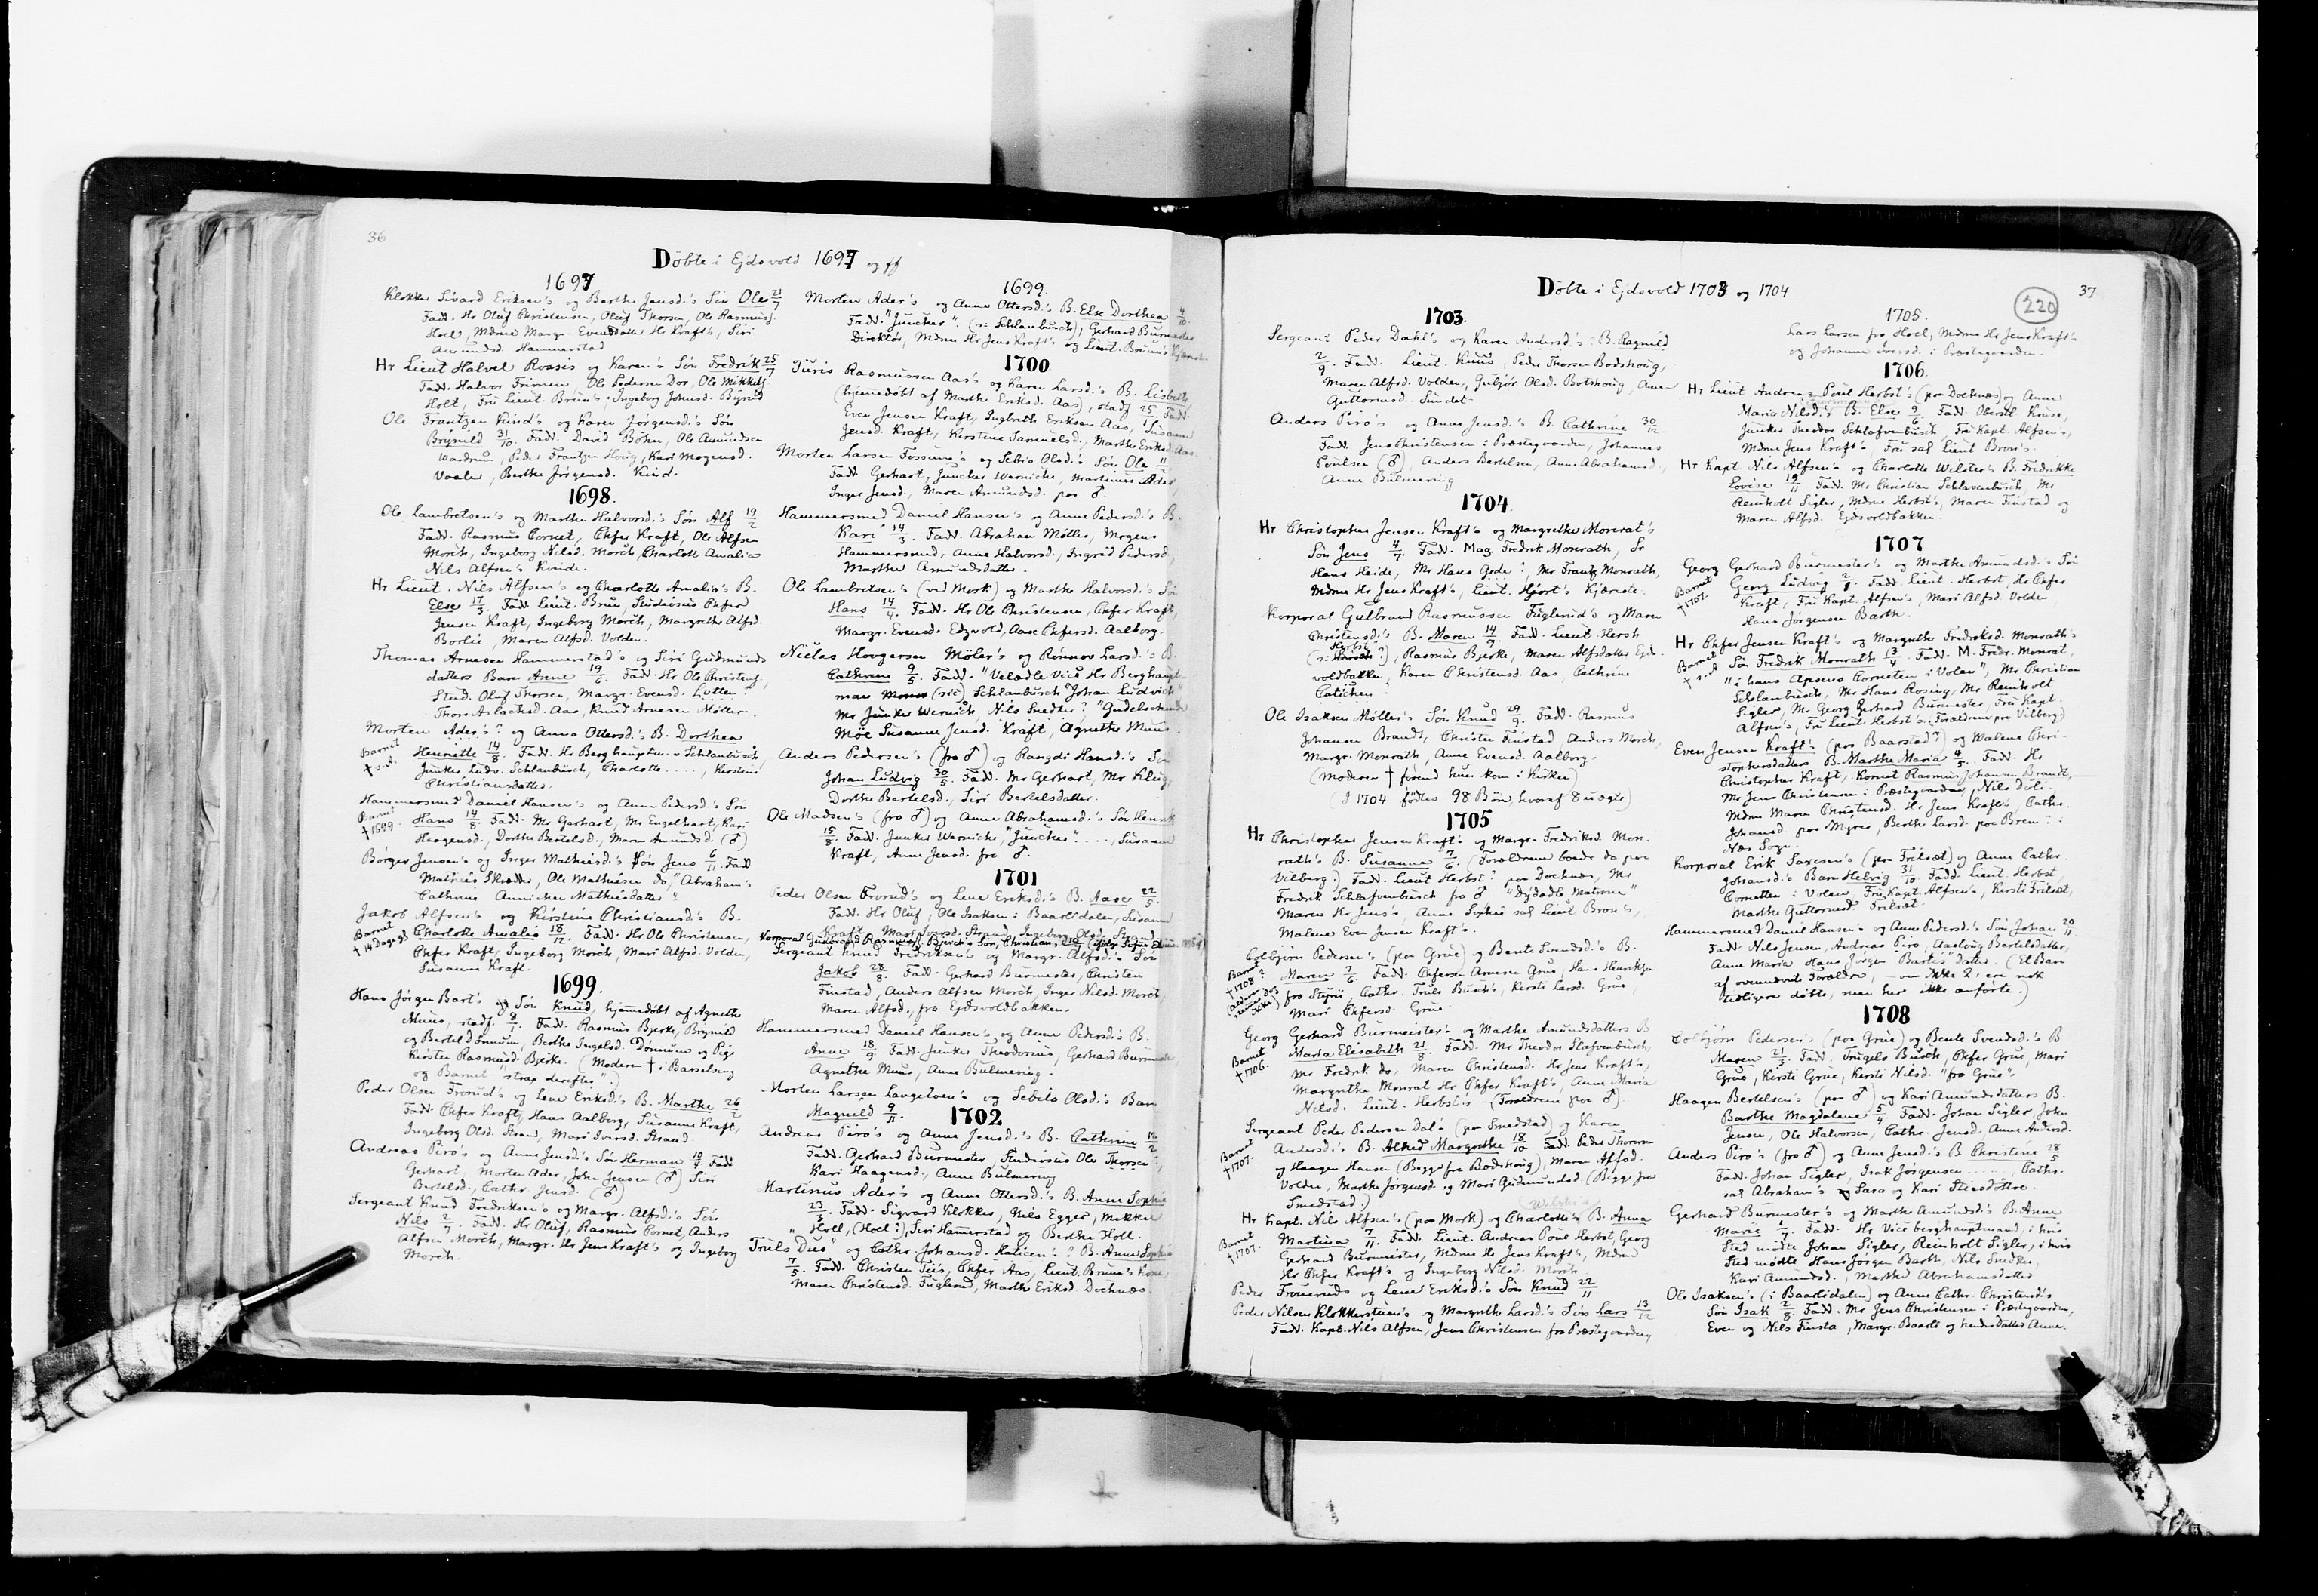 36
Döbte i Ejdsvold 1697 og ff
1697
Klokker Sivard Eriksen's og Berthe Jensd.'s Sön Ole 21/7
Fadd. Hr Oluf Christensen, Oluf Thorsen, Ole Rasmusj.
Hoel, Mdme Margr. Evensdatter Hr Kraft's, Siri
Amundsd. Hammerstad
Hr Lieut Halvel Rossis og Karen's Sön Fredrik 25/7
Fadd. Halvor Frimen, Ole Pedersen Dor, Ole Mikkels
Holt, Fru Lieut. Brun's, Ingeborg Johnsd. Bÿrud
Ole Frantzen Kind's og Karen Jörgensd.'s Sön
Brynild 31/10. Fadd. David Böhn, Ole Amundsen
Wardrum, Peder Frantzen Houg, Kari Mogensd.
Vaaler, Berthe Jörgensd. Kind.
1698.
Ole Lambretsen's og Marthe Halvorsd.'s Sön Alf 19/2
Fadd. Rasmus Cornet, Chfer Kraft, Ole Alfsen
Morch, Ingeborg Nilsd. Morch, Charlott Amalia
Nils Alfsen's Kvinde.
Hr Lieut. Nils Alfsen's og Charlotte Amalia's B.
Else 17/3. Fadd. Lieut. Brun, Studiosus Chfer
Jensen Kraft, Ingeborg Morch, Margrethe Alfsd.
Borlie, Maren Alfsd. Volden.
Thomas Arnesen Hammerstad's og Siri Gudmunds
datters Barn Anne 19/6. Fadd. Hr Ole Christens.,
Stud. Oluf Thorsen, Margr. Evensd. Lotten?
Thore Aslachsd. Aas, Knud Arnesen Möller.
Morten Ader's? og Anna Ottersd.'s B. Dorthea
Barnet
Henriette 14/8. Fadd. Hr Berghauptm. v Schlanbusch,
Junker Ludv. Schlanbusch, Charlotte ....., Kirstine
Christiansdatter.
Hammersmed Daniel Hansen's og Anne Pedersd.'s Sön
Barnet † 1699.
Hans 14/8. Fadd. Mr Gerhart, Mr Engelhart, Kari
Haagensd., Dorthe Bertelsd., Maren Amundsd. (♂)
Börger Jensen's og Inger Mathiesd.'s Sön Jens 6/11. Fadd.
Mathies Skrædder, Ole Mathiesen do, "Abraham's
Cathrine Anniken Mathiesdatter"
Jakob Alfsen's og Kirstine Christiansd.'s B.
Barnet † 14 Dage gl
Charlotte Amalia 18/12. Fadd. Hr Ole Christensen,
Chfer Kraft, Ingeborg Morch, Mari Alfsd. Volden,
Susanne Kraft.
1699.
Hans Jörgen Bart's og Sön Knud, hjemmedöbt af Agnethe
Muus, stadf. 8/1. Fadd. Rasmus Bjerke, Brynild
og Bertel Dönnum, Berthe Ingelsd. Dönnum og Pige
Kirsten Rasmusd. Bjerke. (Moderen † i Barselseng
og Barnet "strax derefter".)
Peder Olsen Frorud's og Lene Eriksd.'s B. Marthe 26/2
Fadd. Chfer Kraft, Hans Aalborg, Susanne Kraft,
Ingeborg Olsd. Strand, Mari Iversd. Strand
Andreas Piro's og Anne Jensd.'s Sön Herman 10/4 Fadd
Gerhart, Morten Ader, John Jensen (♂) Siri
Bertelsd., Cathr Jensd. (♂)
Sergeant Knud Fredriksen's og Margr. Alfsd.'s Sön
Nils 2/7. Fadd. Hr Oluf, Rasmus Cornet, Anders
Alfsen Morch, Margr. Hr Jens Kraft's og Ingeborg
Morch.
1699.
Morten Ader's og Anne Ottersd.'s B. Else Dorthea 4/10
Fadd. "Juncher" (ɔ: Schlanbusch), Gerhard Burmester
Direktör, Mdme Hr Jens Kraft's og Lieut. Bruun's Kjæreste
1700
Turis Rasmussen Aas's og Karen Larsd.'s B. Lisbeth,
(hjemmedöbt af Marthe Eriksd. Aas), stadf 25/1 Fadd.
Even Jensen Kraft, Ingbrith Eriksen Aas, Susanne
Jensd. Kraft, Kirstine Samuelsd., Marthe Eriksd. Aas.
Morten Larsen Fossum's og Sebio Olsd.'s Sön Ole
Fadd. Gerhart, Juncher Wernichs, Martinus Ader,
Inger Jensd., Maren Amundsd. paa ♂.
Hammersmed Daniel Hansen's og Anne Pedersd.'s B.
Kari 14/3. Fadd. Abraham Möller, Mogens
Hammersmed, Anne Halvorsd., Ingrid Pedersd.,
Marthe Amundsdatter.
Ole Lambretsen's (ved Mork) og Marthe Halvorsd.'s Sön
Hans 14/4. Fadd. Hr Ole Christensen, Chfer Kraft,
Margr. Evensd. Edzvold, Aase Chfersd. Aalborg.
Niclas Hovgersen Möler's og Rönnov Larsd.'s B.
Cathrine 9/5. Fadd. "Velædle Vice Hr Berghaupt-
man (sic) Schlanbusch "Johan Ludvich"
Mr Junker Wernich, Nils Snedker? "Gudelschende
Möe Susanne Jensd. Kraft, Agnethe Muus.
Anders Pedersen's (fra ♂) og Rangdi Hansd.'s Sön
Johan Ludvig 30/5. Fadd. Mr Gerhart, Mr Klug,
Dorthe Bertelsd., Siri Bertelsdatter.
Ole Madsen's (fra ♂) og Anne Abrahamsd.'s Sön Henrik
15/8. Fadd. Junker Wernichs, "Juncher" ...., Susanne
Kraft, Anne Jensd. fra ♂.
1701
Peder Olsen Frorud's og Lene Eriksd.'s B. Aase 22/5.
Fadd. Hr Oluf, Ole Isaksen i Baarlidalen, Susanne
Kraft, Mari Iversd. Strand, Ingeborg Olsd. Strand
Korporal Gulbrand Rasmuss. Bjerch's Sön, Christian,
Sergeant Knud Fredriksen's og Margr. Alfsd.'s Sön
Jakob 28/8. Fadd. Gerhard Burmester, Christen
Finstad, Anders Alfsen Morch, Inger Nilsd. Morch,
Maren Alfsd. fra Ejdsvoldbakken.
Hammersmed Daniel Hansen's og Anne Pedersd.'s B.
Anne 18/9. Fadd. Junker Theodorius, Gerhard Burmester
Agnethe Muus, Anne Bulmering.
Morten Larsen Langelven's og Sebila Olsd.'s Barn
Magnild 9/11.
1702
Andreas Piro's og Anne Jensd.'s B. Cathrine 12/2
Fadd. Gerhard Burmester, Studiosus Ole Thorsen?,
Kari Haagensd., Anne Bulmering
Martinus Ader's og Anne Ottersd.'s B. Anne Sophia
23/3. Fadd. Sigvard Klokker, Nils Egger, Mikkel
Holl, (Hoel?), Siri Hamerstad og Berthe Holl.
"Truls Dus" og Cathr Johansd. Katicen's? B. Anne Sophia
7/5. Fadd. Christen Tiis, Chfer Aas, Lieut. Bruun's Kone,
Maren Christensd. Fuglerud, Marthe Eriksd. Dochnæs.
Döbte i Ejdsvold 1703 og 1704
37
220
1703.
Sergeant Peder Dahl's og Karen Andersd.'s B. Ragnild
2/9. Fadd. Lieut. Knuus, Peder Thorsen Bodshoug,
Maren Alfsd. Volden, Gubjör Olsd. Botshoug, Anne
Guttormsd. Sundet.
Anders Piro's og Anne Jensd.'s B. Cathrine 30/12
Fadd. Jens Christensen i Præstegaarden, Johannes
Poulsen (♂), Anders Bertelsen, Anne Abrahamsd.,
Anne Bulmering
1704
Hr Christopher Jensen Kraft's og Margrethe Monrat's
Sön Jens 4/7. Fadd. Mag. Fredrik Monrath, Sr
Hans Heide, Mr Hans Gede?, Mr Frantz Monrath,
Mdme Hr Jens Kraft's, Lieut. Hjort's Kjæreste.
Korporal Gulbrand Rasmussen Fuglerud's og Maren
Christensd.'s B. Maren 14/9. Fadd. Lieut. Hersts
(ɔ: Herbst?), Rasmus Bjerke, Maren Alfsdatter Ejd-
voldbakken, Karen Christensd. Aas, Cathrine
Catichen.
Ole Isaksen Möller's Sön Knud 29/9. Fadd. Rasmus
Johansen Brandt, Christen Finstad, Anders Morch,
Margr. Monrath, Anne Evensd. Aalborg.
(Moderen † förend hun kom i Kirken)
(I 1704 födtes 98 Börn, hvoraf 8 uægte)
1705
Hr Christopher Jensen Kraft's og Margr. Fredriksd. Mon-
rath's B. Susanna 7/6. (Forældrene boede da paa
Vilberg.) Fadd. Lieut Herbst? paa Dochnæs, Mr
Fredrik Schlafvenbusch fra ♂ "Dydædle Matrone"
Maren Hr Jens's, Anne Sophie sal Lieut Bron's,
Malene Even Jensen Kraft's.
Colbjörn Pedersen's (paa Grue) og Bente Svendsd.'s B.
Barnet † 1708?
Maren 7/6. Fadd. Chfersen Arnesen Grue, Hans Henriksen
fra Stejnii, Cathr. Truls Busch's, Kersti Larsd. Grue,
Mari Chfersd. Grue
Georg Gerhard Burmeister's og Marthe Amundsdatters B
Barnet † 1706.
Maria Elisabeth 21/8. Fadd. Mr Theodor Slafvenbusch,
Mr Fredrik do, Maren Christensd. Hr Jens Kraft's,
Margrethe Monrat Hr Chfer Kraft's, Anne Maria
Nilsd. Lieut. Herbst's (Forældrene paa ♂).
Sergeant Peder Pedersen Dal's (paa Smedstad) og Karen
Barnet † 1707.
Andersd.'s B. Alhed Margrethe 18/10 Fadd. Peder Thorsen
og Haagen Hansen (Begge fra Bodshoug), Maren Alfsd.
Volden, Marthe Jörgensd. og Mari Gudmundsd. (Begge fra
Smedstad.)
Hr Kapt. Nils Alfsen's (paa Mork) og Charlotte's B. Anna
Barnet † 1707.
Martina 7/11. Fadd. Lieut. Andreas Poul Herbst, Georg
Gerhard Burmeister, Mdme Hr Jens Kraft's, Mdme
Hr Chfer Kraft's og Ingeborg Nilsd. Morch.
Peder Frouerud's og Lene Eriksd.'s Sön Knud 22/11
Peder Nilsen Klokkerstuen's og Margrethe Larsd.'s Sön Lars 13/12
Fadd. Kapt. Nils Alfsen, Jens Christensen fra Præstegaarden,
1705.
Lars Larsen fra Hoel, Mdme Hr Jens Kraft's
og Johanne Iversd. i Præstegaarden.
1706.
Hr Lieut Andreas Poul Herbst's (paa Dochnæs) og Anne
Maria Nilsd.'s B. Else 9/6. Fadd. Oberstl Kruse,
Junker Theodor Schlafvenbusch, Fru Kapt. Alfsen's,
Mdme Jens Kraft's, Fru sal Lieut Bron's.
Hr Kapt Nils Alfsen's og Charlotte Wilster's B. Fredrikke
Lovise 19/11 Fadd. Mr Christian Schlavenbusch, Mr
Reinholt Sigler, Mdme Herbst's, Maren Finstad og
Maren Alfsd. Ejdsvoldbakken.
1707
Georg Gerhard Burmester's og Marthe Amundsd.'s Sön
Barnet † 1707.
Georg Ludvig 2/1. Fadd. Lieut. Herbst, Hr Chfer
Kraft, Fru Kapt Alfsen's, Mari Alfsd. Volden
Hans Jörgensen Barth.
Hr Chfer Jensen Kraft's og Margrethe Fredriksd. Monrath's
Barnet
Sön Fredrik Monrath 13/4. Fadd. M. Fredr. Monrat,
"i hans Apsens Corneten i Volen", Mr Christian
Schlanbusch, Mr Hans Rosing, Mr Reinholt
Sigler, Mr Georg Gerhard Burmester, Fru Kapt.
Alfsen's, Fru Lieut Herbst's. (Forældrene paa Vilberg)
Even Jensen Kraft's (paa Baarstad?) og Malene Chri-
stophersdatters B. Marthe Maria 4/5. Fadd. Hr
Christopher Kraft, Kornet Rasmus Johansen Brandt,
Mr Jens Christensen i Præstegaarden, Nils Döli
Mdme Maren Christensd. Hr Jens Kraft's, Cathr.
Johansd. paa Myrer, Berthe Larsd. paa Brem i
Næs Sogn.
Korporal Erik Saxesen's (paa Frilset) og Anne Cathr.
Johansd.'s Barn Helvig 31/10 Fadd. Lieut. Herbst,
Cornetten i Volen, Fru Kapt Alfsen's, Kersti Frilset,
Marthe Guttormsd. Frilset.
Hammersmed Daniel Hansen's og Anne Pedersd.'s Sön Johan 20/11
Fadd. Nils Jensen, Andreas Piro, Aasloug Bertelsdatter,
Anne Maria Hans Jörgen Bartes' Datter. (Et Barn
af ovennævnte Forældre, – om ikke 2, ere nok
tidligere döbte, men her ikke anförte.)
1708
Colbjörn Pedersen's (paa Grue) og Bente Svendsd.'s B
Maren 21/3. Fadd. Trugels Busch, Chfer Grue, Mari
Grue, Kirsti Grue, Kersti Nilsd. "fra Grue".
Haagen Bertelsen's (paa ♂) og Kari Amundsdatters B.
Barthe Magdalena 5/4 Fadd. Johan Sigler, John
Jensen, Ole Halvorsen, Cathr. Jensd. Anne Andersd.
Anders Piro's (fra ♂) og Anne Jensd.'s B Christine 28/5
Fadd. Johan Sigler, Isak Jörgensen ......, Cathr.
sal Abraham's og Sara og Kari Stiesdöttre.
Gerhard Burmester's og Marthe Amundsd.'s B. Anne
Marie 1/7. Fadd. Hr Vice berghauptmand, i hvis
Sted mödte Johan Sigler, Reinholt Sigler, i hvis
Sted mödte Hans Jörgen Barth, Nils Snedker,
Kari Amundsd., Marthe Abrahamsdatter
Ole Isaksen's (i Baarlidalen) og Anne Cathr. Christensd.'s
Sön Isak 2/8. Fadd. Mr Jens Christensen i Præstegaarden,
Even og Nils Finsta, Margr. Baarli og hendes Datter Anne.